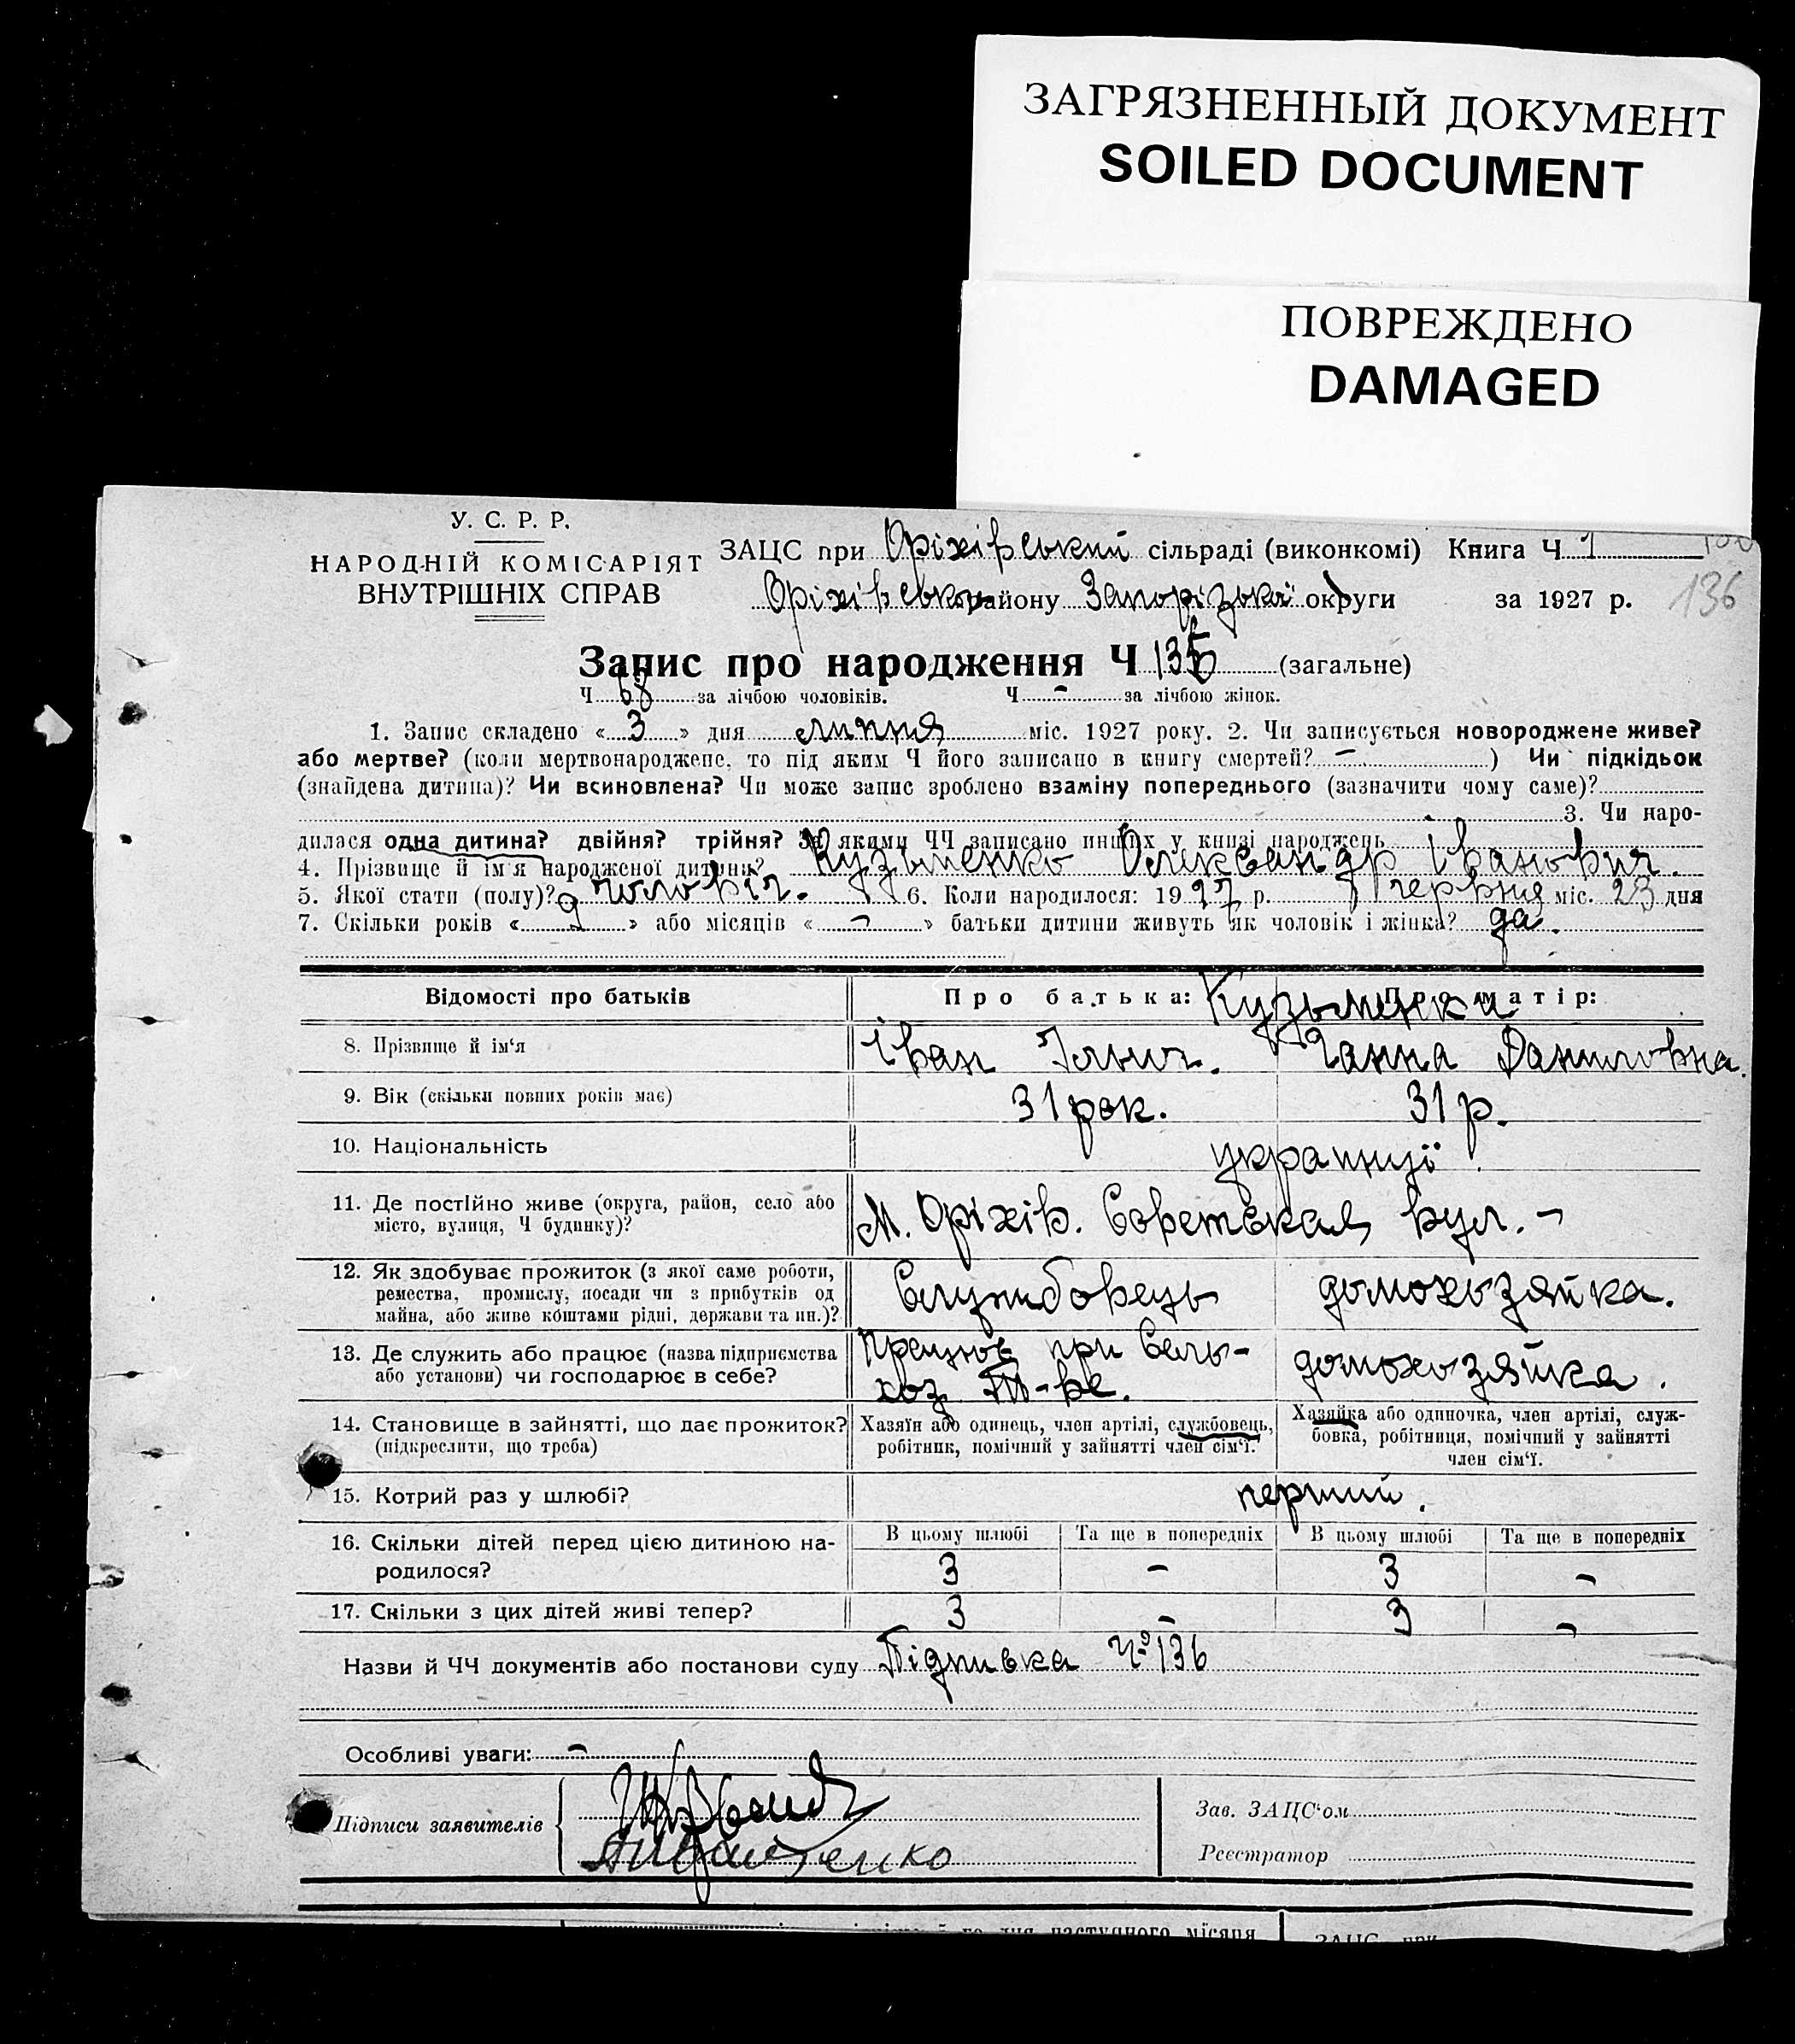 ЗАГРЯЗНЕННЫЙ ДОКУМЕНТ
SOILED DOCUMENT
ПОВРЕЖДЕНО
DAMAGED
У. С. Р. Р.
НАРОДНІЙ КОМІСАРІЯТ
ВНУТРІШНІХ СПРАВ
ЗАЦС при Оріхівський сільраді (виконкомі) Книга Ч 1
Оріхівськ району Запорізької округи за 1927 р. 136
Запис про народження Ч 136 (загальне)
Ч 68 за лічбою чоловіків. Ч - за лічбою жінок.
1. Запис складено « 3 » дня липня міс. 1927 року. 2. Чи записується новороджене живе?
або мертве? (коли мертвонароджене, то під яким Ч його записано в книгу смертей? - ) Чи підкідьок
(знайдена дитина)? Чи всиновлена? Чи може запис зроблено взаміну попереднього (зазначити чому саме)?
3. Чи наро-
дилася одна дитина? двійня? трійня? За якими ЧЧ записано инших у книзі народжень
4. Прізвище й ім'я народженої дитини? Кузьменко Олександр Іванович.
5. Якої стати (полу)? чоловіч. 6. Коли народилося: 1927 р. червня міс. 23 дня
7. Скільки років « 9 » або місяців « - » батьки дитини живуть як чоловік і жінка? да.
Відомості про батьків
Про батька: Кузьменки Про матір:
8. Прізвище й ім'я Іван Ільич. Ганна Даниловна.
9. Вік (скільки повних років має) 31 рок. 31 р.
10. Національність українці
11. Де постійно живе (округа, район, село або
місто, вулиця, Ч будинку)? м. Оріхів. Советская вул. -
12. Як здобуває прожиток (з якої саме роботи,
ремества, промислу, посади чи з прибутків од
майна, або живе коштами рідні, держави та ин.)? Службовець домохозяйка.
13. Де служить або працює (назва підприємства
або установи) чи господарює в себе? Працює при Сель-
хоз Т-ве. домохозяйка.
14. Становище в зайнятті, що дає прожиток?
(підкреслити, що треба)
Хазяїн або одинець, член артілі, службовець,
робітник, помічний у зайнятті член сім'ї.
Хазяйка або одиночка, член артілі, служ-
бовка, робітниця, помічний у зайнятті
член сім'ї.
15. Котрий раз у шлюбі? перший.
16. Скільки дітей перед цією дитиною на-
родилося?
В цьому шлюбі Та ще в попередніх В цьому шлюбі Та ще в попередніх
3 - 3 -
17. Скільки з цих дітей живі тепер? 3 - 3 -
Назви й ЧЧ документів або постанови суду Підписка Ч 136
Особливі уваги: -
Підписи заявителів
Зав. ЗАЦС'ом
Реєстратор
дня наступного місяця
ЗАЦС при